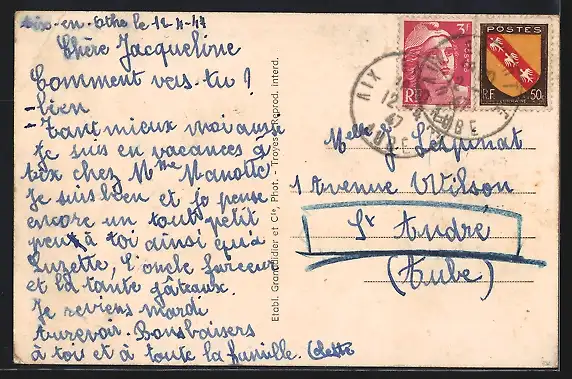 Aix-en-Othe le 12-4-47
Chère Jacqueline
Comment vas-tu?
- bien
- Tant mieux moi aussi
je suis en vacances à
Aix chez Mme Manotte
Je suis bien et je pense
encore un tout petit
peu à toi ainsi qu'à
Suzette, l'oncle farceur
et la tante gâteaux.
Je reviens mardi
Aurevoir. Bons baisers
à toi et à toute la famille. Colette
Etabl. Grandidier et Cie, Phot. - Troyes - Reprod. interd.
3F
RF
POSTES
RF 50c
LORRAINE
AIX
12-4
47
AUBE
Melle J. Lespinat
1 Avenue Wilson
St André
(Aube)